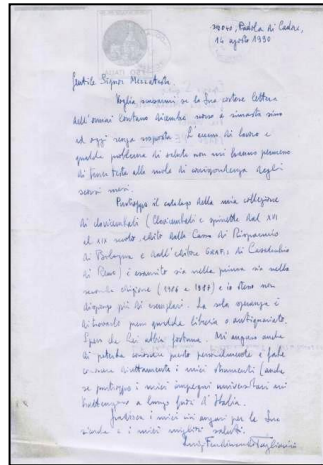 32040, Padola di Cadore,
14 agosto 1990
Gentile Signor Mezzatesta,
Voglia scusarmi se la Sua cortese lettera
dell'ormai lontano dicembre scorso è rimasta sino
ad oggi senza risposta. L'eccesso di lavoro e
qualche problema di salute non mi hanno permesso
di far testa alla mole di corrispondenza degli
scorsi mesi.
Purtroppo il catalogo della mia collezione
di clavicembali (Clavicembali e spinette dal XVI
al XIX secolo, edito dalla Cassa di Risparmio
di Bologna e dall'editore GRAFIS di Casalecchio
di Reno) è esaurito sia nella prima sia nella
seconda edizione (1986 e 1987) e io stesso non
dispongo più di esemplari. La sola speranza è
di trovarlo presso qualche libreria o antiquariato.
Spero che Lei abbia fortuna. Mi auguro anche
di poterla conoscere presto personalmente e farLe
conoscere direttamente i miei strumenti (anche
se purtroppo i miei impegni universitari mi
trattengono a lungo fuori d'Italia.
Gradisca i miei più auguri per la Sua
e i miei migliori saluti.
Luigi Ferdinando Tagliavini